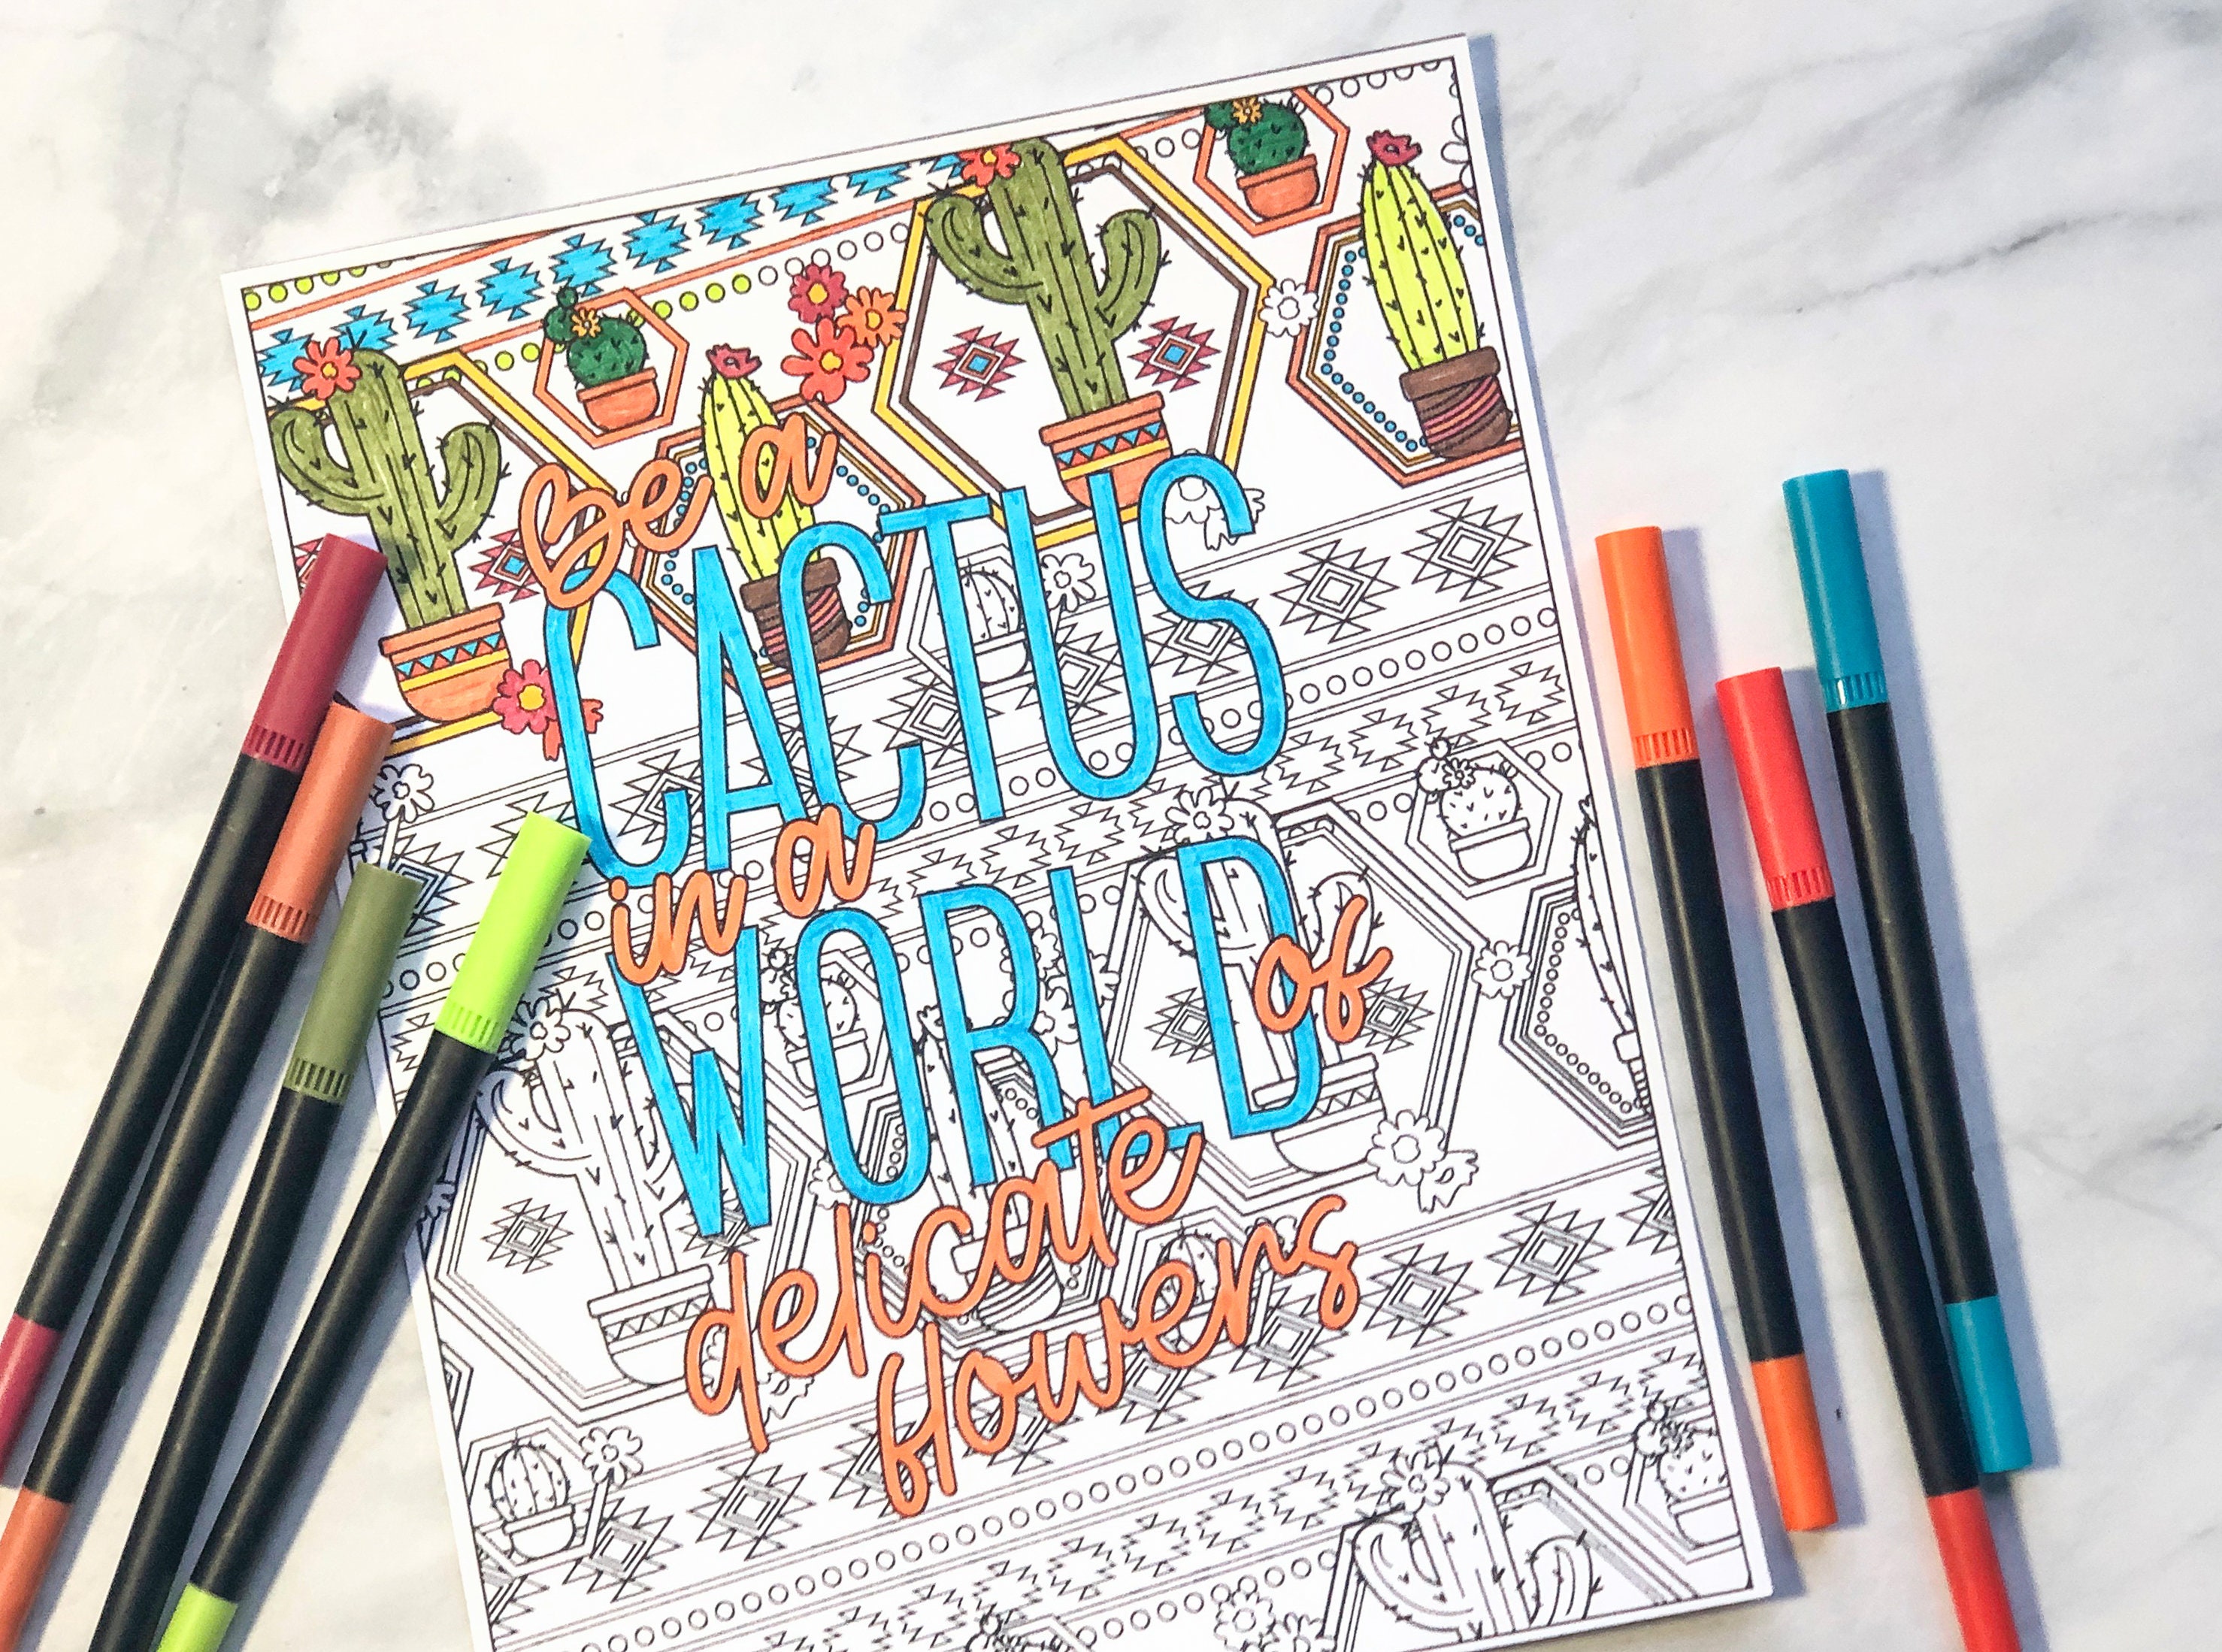 Be a
CACTUS
in a
WORLD of
delicate
flowers